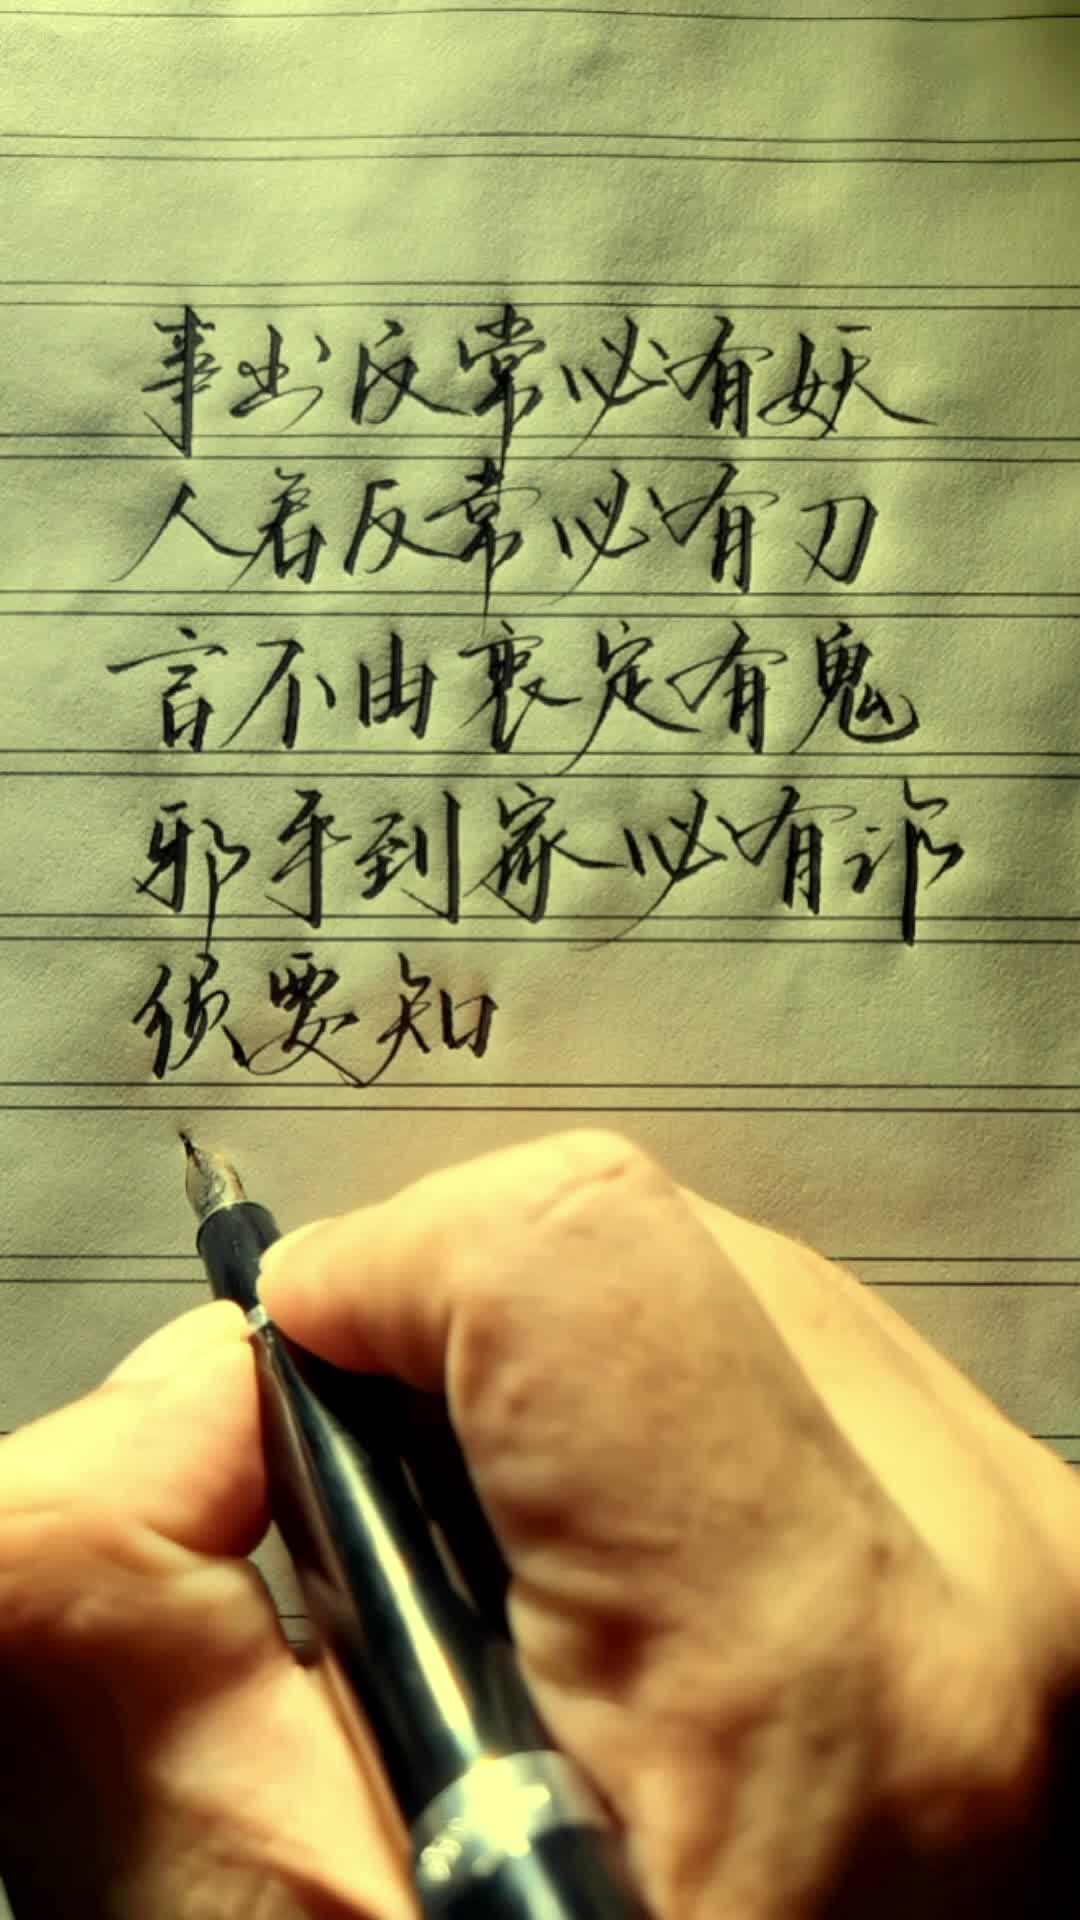 事出反常必有妖
人若反常必有刀
言不由衷定有鬼
邪乎到家必有诈
须要知